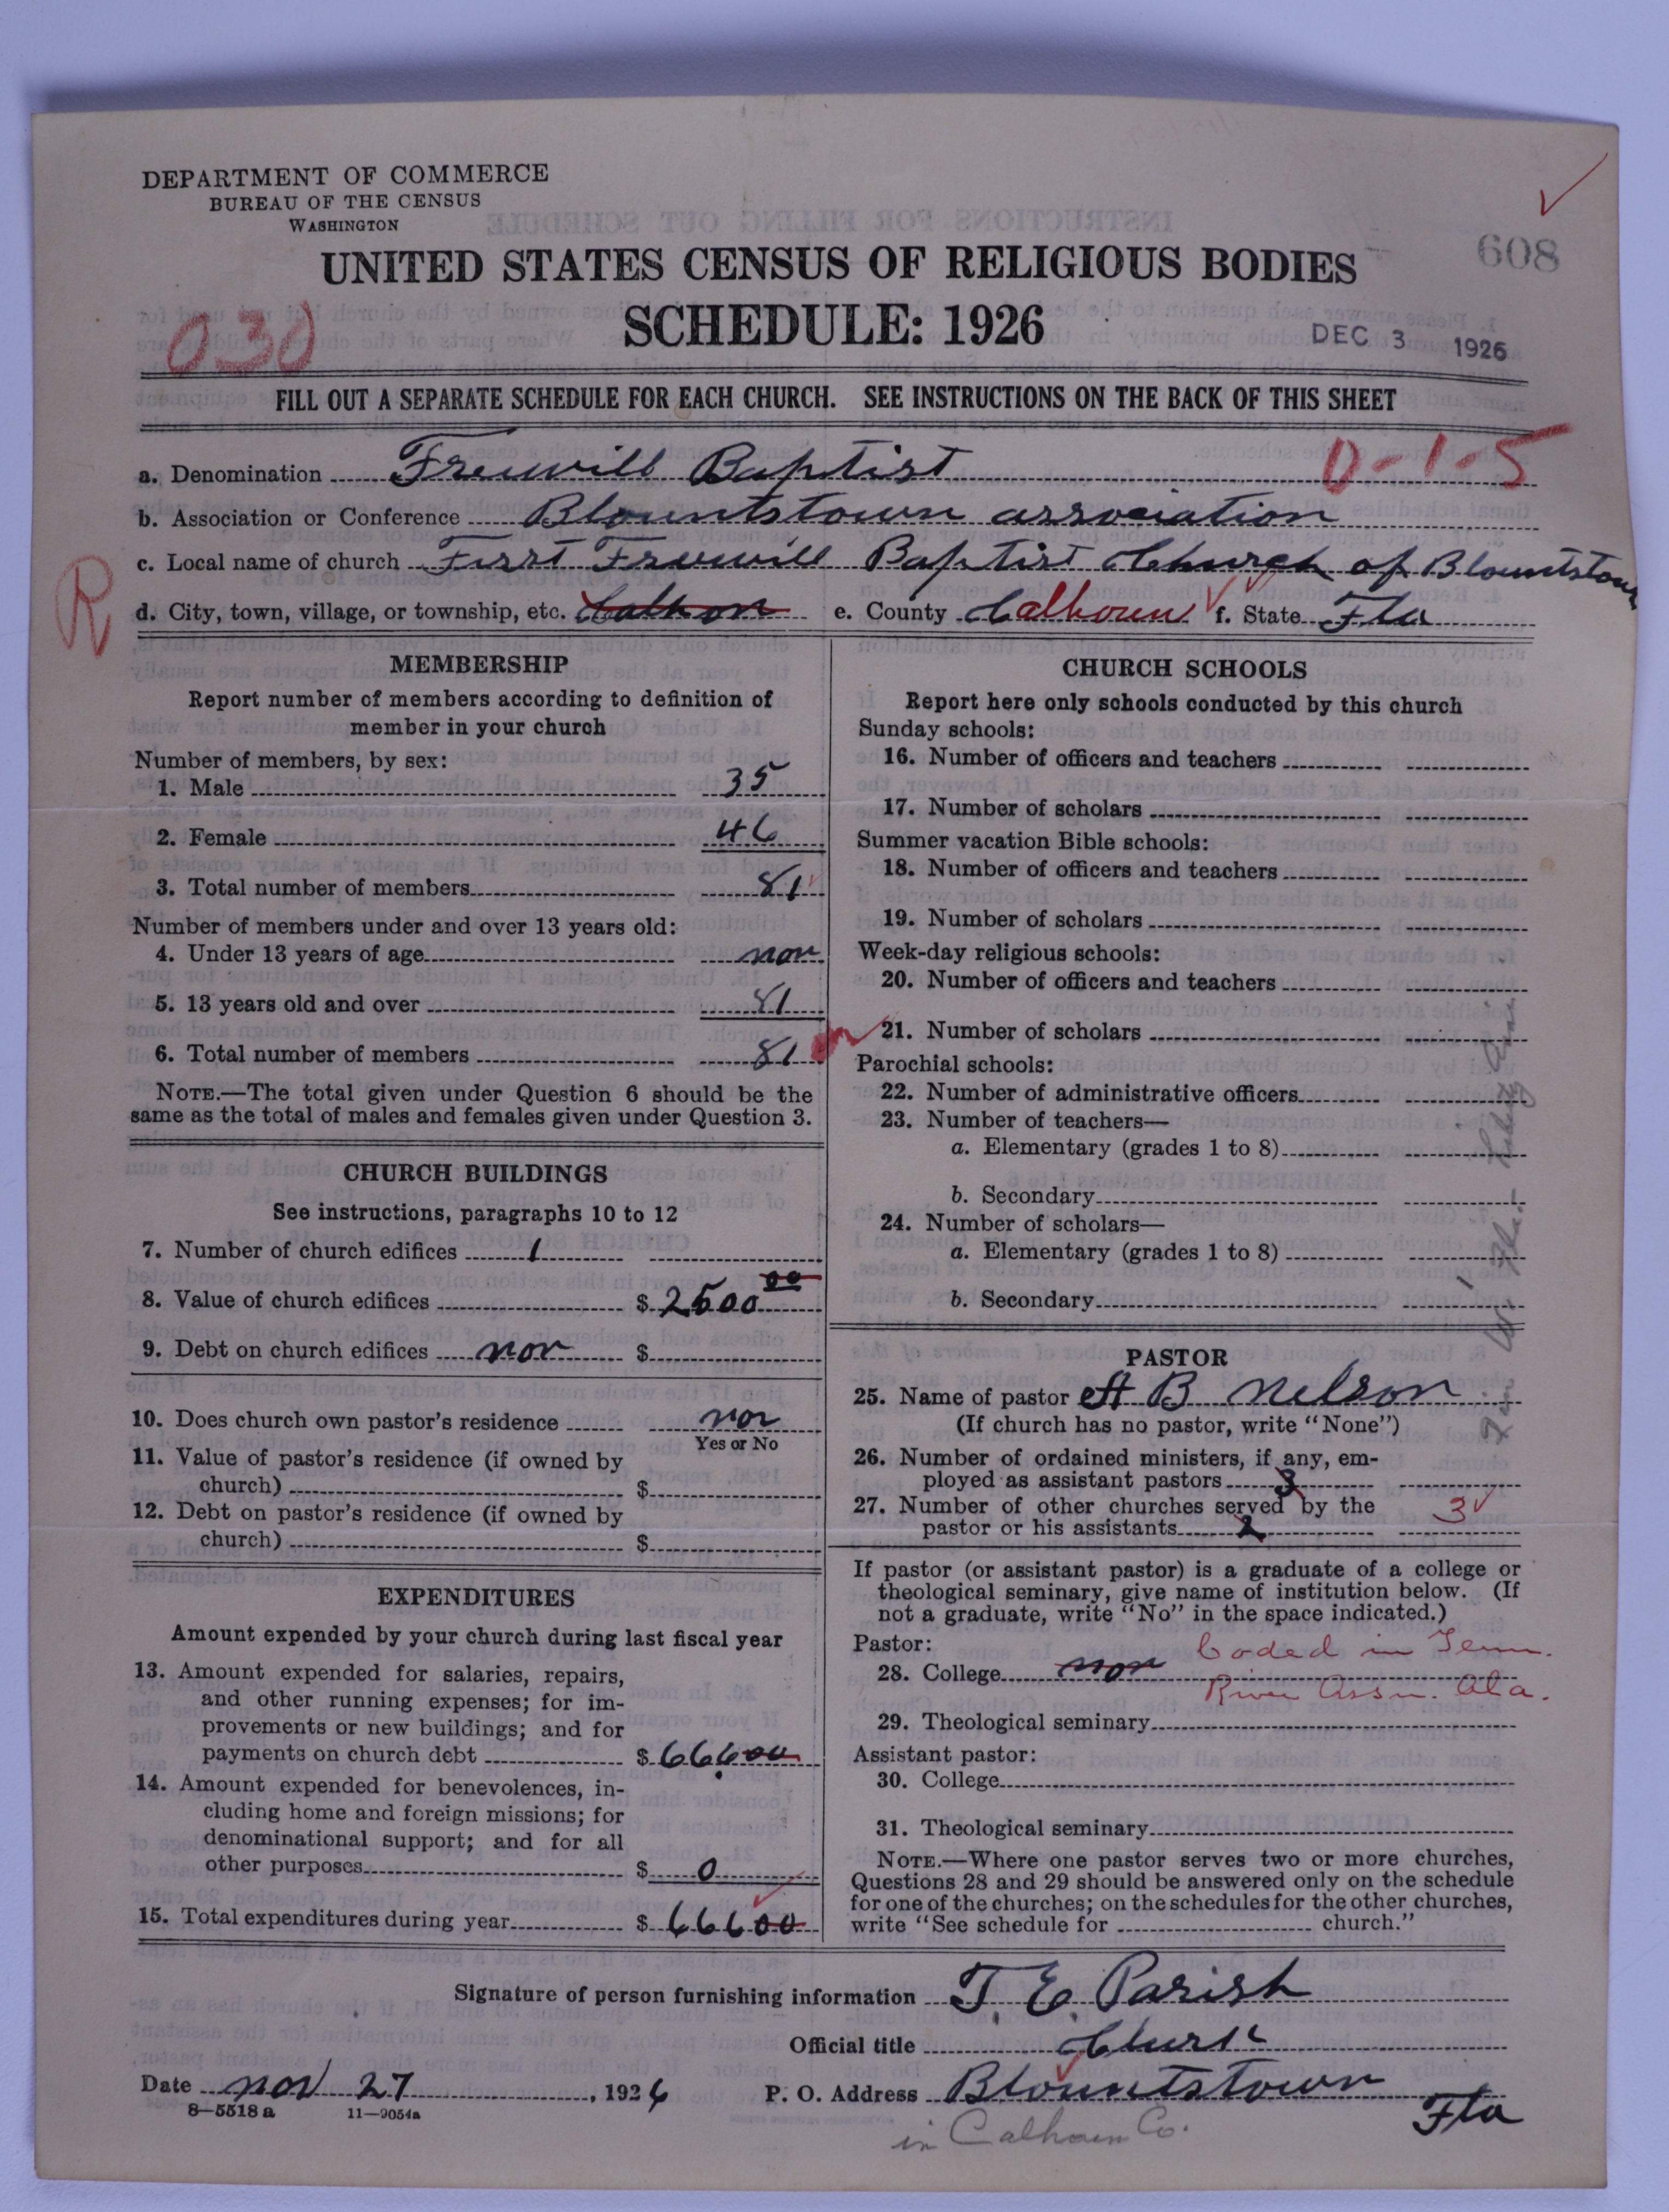 DEPARTMENT OF COMMERCE
BUREAU OF THE CENSUS
WASHINGTON
608
UNITED STATES CENSUS OF RELIGIOUS BODIES
030
SCHEDULE: 1926
DEC 3 1926
FILL OUT A SEPARATE SCHEDULE FOR EACH CHURCH. SEE INSTRUCTIONS ON THE BACK OF THIS SHEET
a. Denomination Freewill Baptist
0-1-5
b. Association or Conference Blountstown association
c. Local name of church First Freewill Baptist Church of Blountstown
R
d. City, town, village, or township, etc. Calhon e. County Calhoun f. State Fla
MEMBERSHIP
Report number of members according to definition of
member in your church
Number of members, by sex:
1. Male 35
2. Female 46
3. Total number of members 81
Number of members under and over 13 years old:
4. Under 13 years of age non
5. 13 years old and over 81
6. Total number of members 81
NOTE.—The total given under Question 6 should be the
same as the total of males and females given under Question 3.
CHURCH BUILDINGS
See instructions, paragraphs 10 to 12
7. Number of church edifices 1
8. Value of church edifices $ 2500 00
9. Debt on church edifices non $
10. Does church own pastor's residence non
Yes or No
11. Value of pastor's residence (if owned by
church) $
12. Debt on pastor's residence (if owned by
church) $
EXPENDITURES
Amount expended by your church during last fiscal year
13. Amount expended for salaries, repairs,
and other running expenses; for im-
provements or new buildings; and for
payments on church debt $ 666 00
14. Amount expended for benevolences, in-
cluding home and foreign missions; for
denominational support; and for all
other purposes $ 0
15. Total expenditures during year $ 666 00
CHURCH SCHOOLS
Report here only schools conducted by this church
Sunday schools:
16. Number of officers and teachers
17. Number of scholars
Summer vacation Bible schools:
18. Number of officers and teachers
19. Number of scholars
Week-day religious schools:
20. Number of officers and teachers
21. Number of scholars
Parochial schools:
22. Number of administrative officers
23. Number of teachers—
a. Elementary (grades 1 to 8)
b. Secondary
24. Number of scholars—
a. Elementary (grades 1 to 8)
b. Secondary
PASTOR
25. Name of pastor B Nelson
(If church has no pastor, write "None")
26. Number of ordained ministers, if any, em-
ployed as assistant pastors 3
27. Number of other churches served by the
pastor or his assistants 2 3
If pastor (or assistant pastor) is a graduate of a college or
theological seminary, give name of institution below. (If
not a graduate, write "No" in the space indicated.)
Pastor:
Coded in Tenn.
28. College non
River Assn. Ala.
29. Theological seminary
Assistant pastor:
30. College
31. Theological seminary
NOTE.—Where one pastor serves two or more churches,
Questions 28 and 29 should be answered only on the schedule
for one of the churches; on the schedules for the other churches,
write "See schedule for church."
Signature of person furnishing information T. E. Parish
Official title Clurk
Date nov 27, 1926 P. O. Address Blountstown
Fla
8—5518 a 11—9054a
in Calhoun Co.